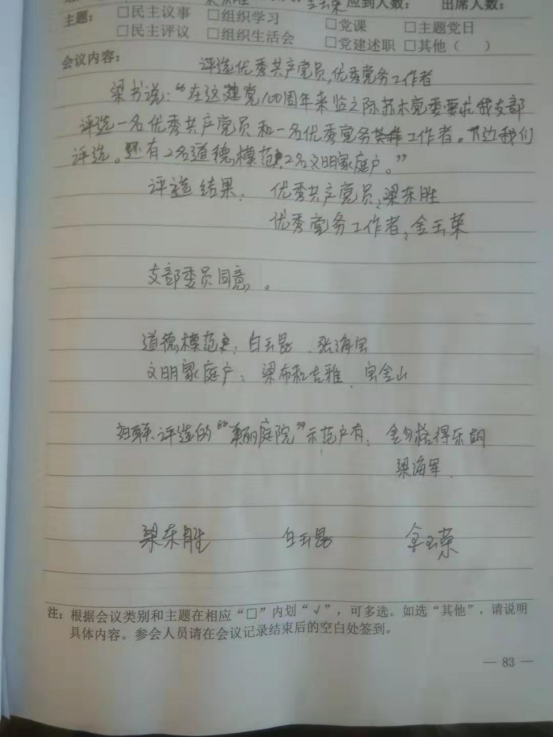 应到人数： 出席人数：
主题： □民主议事 □组织学习 □党课 □主题党日
□民主评议 □组织生活会 □党建述职 □其他（ ）
会议内容： 评选优秀共产党员，优秀党务工作者
梁书说：“在这建党100周年来临之际苏木党委要求我支部
评选一名优秀共产党员和一名优秀党务工作者。下边我们
评选。还有2名道德模范2名文明家庭户。”
评选结果： 优秀共产党员，梁东胜
优秀党务工作者，金玉荣
支部委员同意。
道德模范，白玉 张海宝
文明家庭户：梁布和吉雅 宝金山
评选的“美丽庭院”示范户有： 得乐胡
梁海军
梁东胜 白玉 金玉荣
注：根据会议类别和主题在相应“□”内划“√”，可多选。如选“其他”，请说明
具体内容。参会人员请在会议记录结束后的空白处签到。
— 83 —